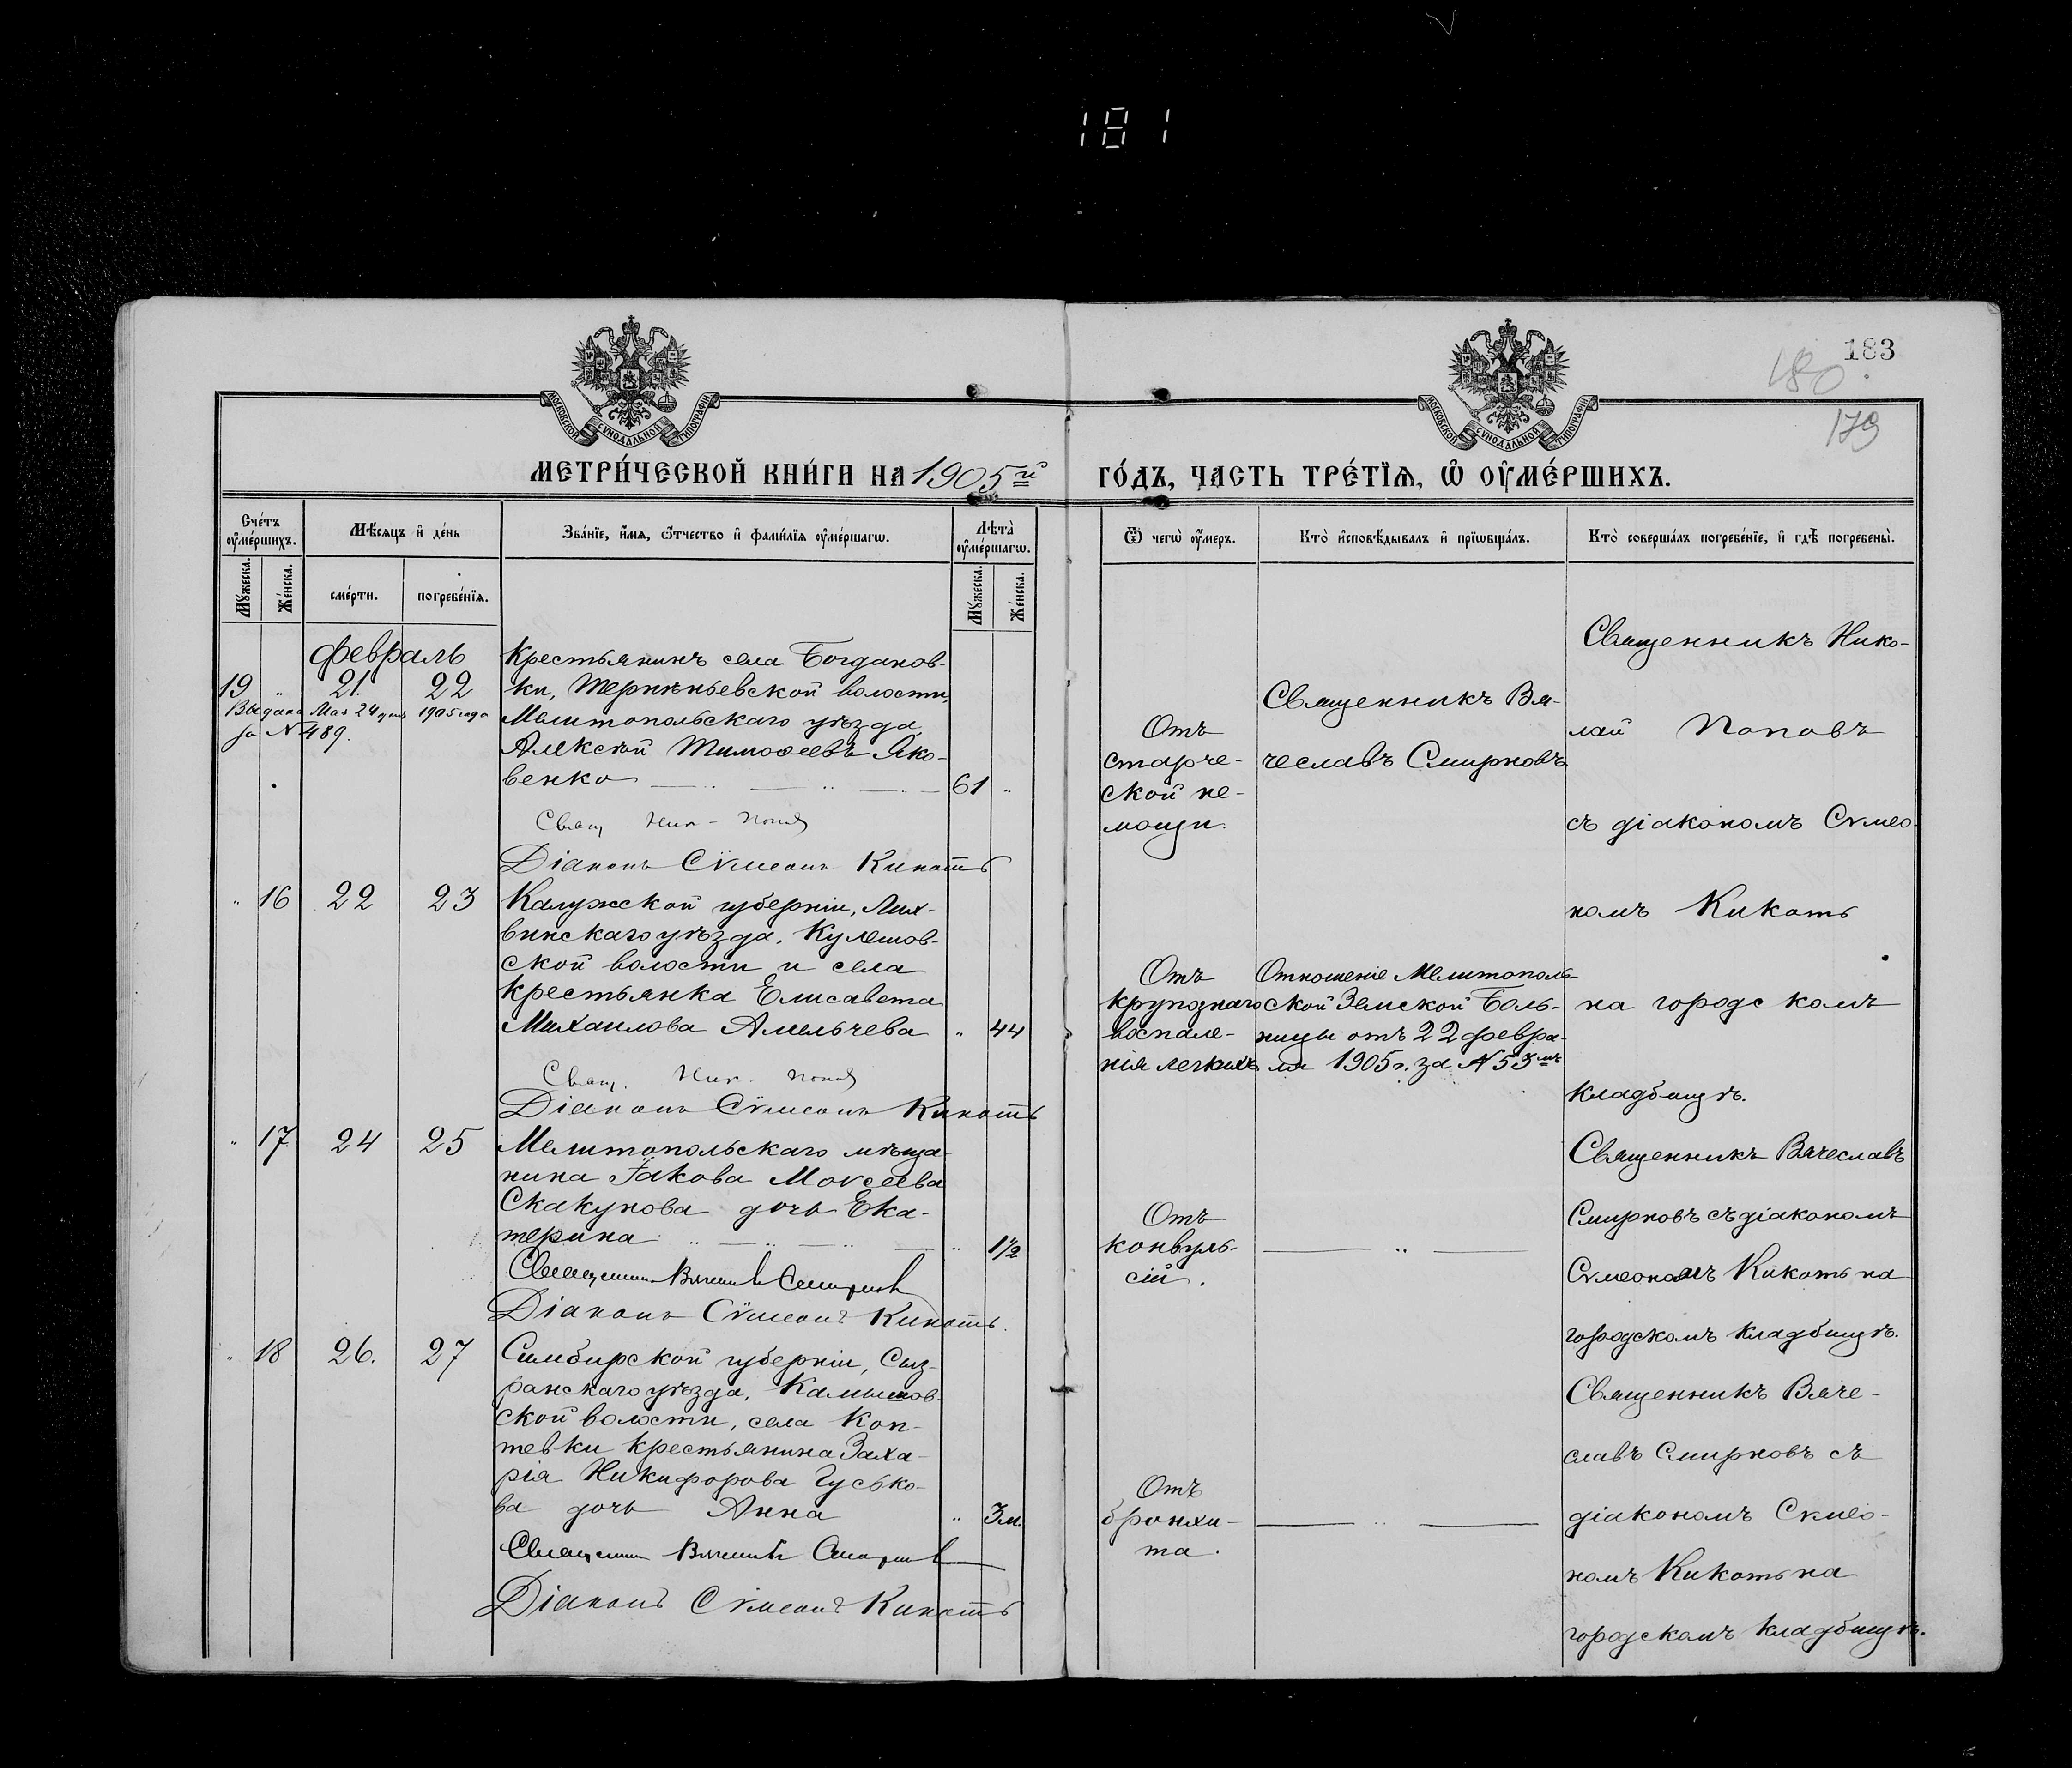 181
183
180
179
МОСКОВСКОЙ СУНОДАЛЬНОЙ ТИПОГРАФІИ
МОСКОВСКОЙ СУНОДАЛЬНОЙ ТИПОГРАФІИ
МЕТРИ́ЧЕСКОЙ КНИ́ГИ НА 1905й ГО́ДЪ, ЧАСТЬ ТРЕ́ТЇѦ, Ѽ ОУ҆МЕ́РШИХЪ.
Сче́тъ оу҆ме́ршихъ.
Мꙋ́жеска.
Же́нска.
Мѣ́сѧцъ и҆ де́нь
сме́рти.
погребе́нїѧ.
Зва́нїе, и҆́мѧ, ѻ҆́тчество и҆ фами́лїѧ оу҆ме́ршагѡ.
Лѣта̀ оу҆ме́ршагѡ.
Мꙋ́жеска.
Же́нска.
Ѿ чегѡ̀ оу҆́меръ.
Кто̀ и҆сповѣ́дывалъ и҆ прїѡбща́лъ.
Кто̀ соверша́лъ погребе́нїе, и҆ гдѣ̀ погребены̀.
февраль
19 " 21. 22
Выдана Мая 24 дня 1905 года
за № 489.
Крестьянинъ села Богданов-
ки, Терпѣньевской волости,
Мелитопольскаго уѣзда,
Алексѣй Тимоѳеевъ Яко-
венко 61 "
Свящ. Ник. Поповъ
Діаконъ Сѵмеонъ Кикоть
Отъ
старче-
ской не-
мощи.
Священникъ Вя-
чеславъ Смирновъ
Священникъ Нико-
лай Поповъ
съ діакономъ Сѵмео-
номъ Кикоть
на городскомъ
кладбищѣ.
" 16 22 23
Калужской губерніи, Лих-
винскаго уѣзда, Кулешов-
ской волости и села
крестьянка Елисавета
Михаилова Амельчева " 44
Свящ. Ник. Поповъ
Діаконъ Сѵмеонъ Кикоть
Отъ
крупознаго
воспале-
нія легкихъ
Отношеніе Мелитополь-
ской Земской Боль-
ницы отъ 22 февра-
ля 1905 г. за № 53мъ
" 17 24 25
Мелитопольскаго мѣща-
нина Іакова Моѵсеева
Скакунова дочь Ека-
терина " 1½
Священникъ Вячеславъ Смирновъ
Діаконъ Сѵмеонъ Кикоть.
Отъ
конвуль-
сій.
Священникъ Вячеславъ
Смирновъ съ діакономъ
Сѵмеономъ Кикоть на
городскомъ кладбищѣ.
" 18 26. 27
Симбирской губерніи, Сыз-
ранскаго уѣзда, Камышов-
ской волости, села Коп-
тевки крестьянина Заха-
рія Никифорова Гусько-
ва дочь Анна " 3 м.
Священникъ Вячеславъ Смирновъ
Діаконъ Сѵмеонъ Кикоть
Отъ
бронхи-
та.
Священникъ Вяче-
славъ Смирновъ съ
діакономъ Сѵмео-
номъ Кикоть на
городскомъ кладбищѣ.